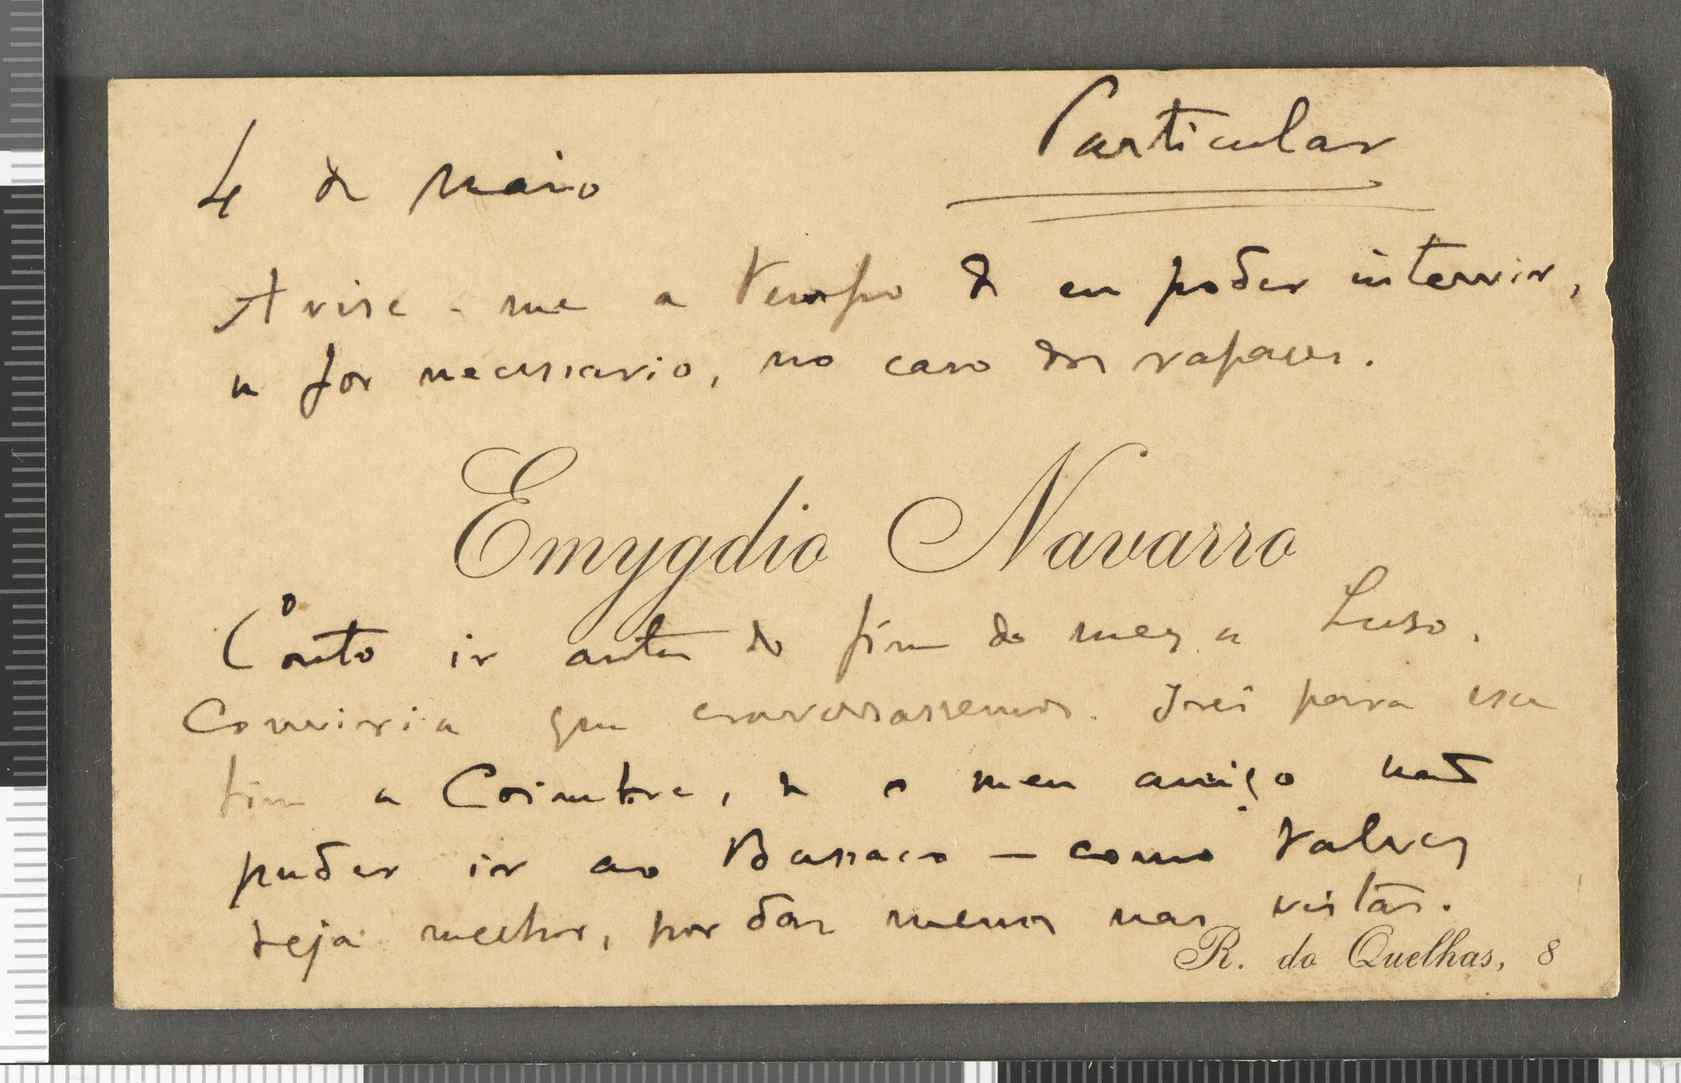 Particular
4 de Maio
Avise-me a tempo de eu poder intervir,
se for necessario, no caso dos rapazes.
Emygdio Navarro
Conto ir antes do fim do mez a Luso.
Conviria que conversassemos. Irei para esse
fim a Coimbra, se o meu amigo não
puder ir ao Bussaco — como talvez
seja melhor, por dar menos nas vistas.
R. do Quelhas, 8